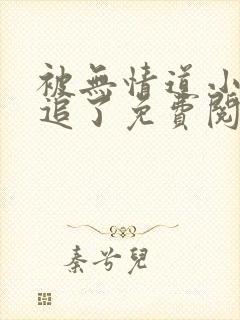 被無情道小
追了免費閱
秦兮兒